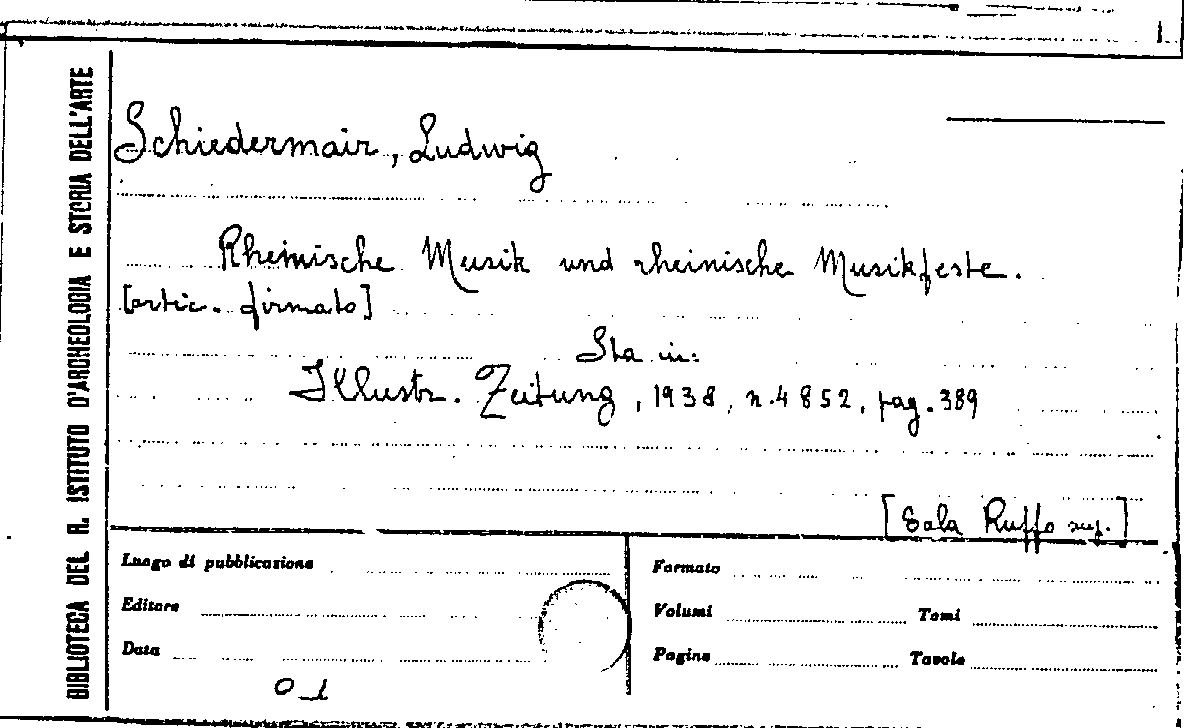 BIBLIOTECA DEL R. ISTITUTO D'ARCHEOLOGIA E STORIA DELL'ARTE
Schiedermair, Ludwig
Rheinische Musik und rheinische Musikfeste.
[artic. firmato]
Sta in:
Illustr. Zeitung, 1938, n.4852, pag. 389
[Sala Ruffo sup.]
Luogo di pubblicazione
Editore
Data
Formato
Volumi Tomi
Pagine Tavole